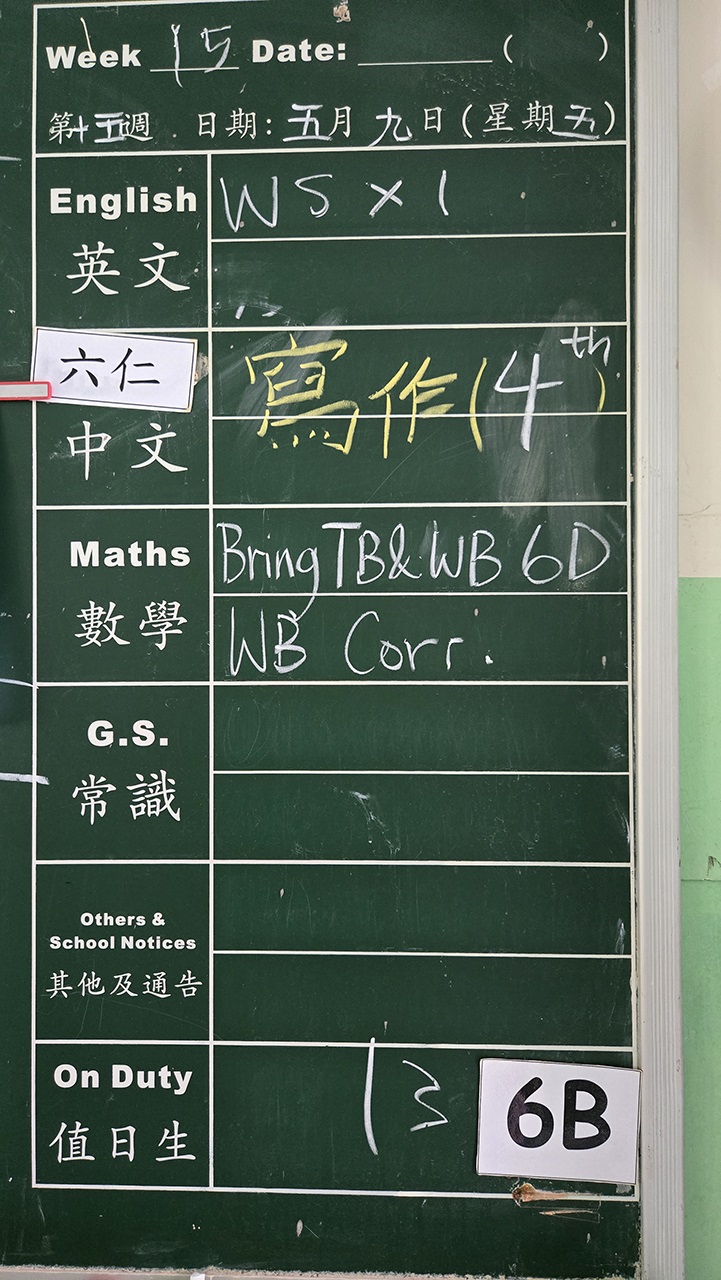 Week 15 Date: ______ ( )
第十五週 . 日期: 五月九日 (星期五)
English WS x 1
英文
六仁
寫作(4th)
中文
Maths Bring TB & WB 6D
數學 WB Corr.
G.S.
常識
Others &
School Notices
其他及通告
On Duty 13
值日生
6B